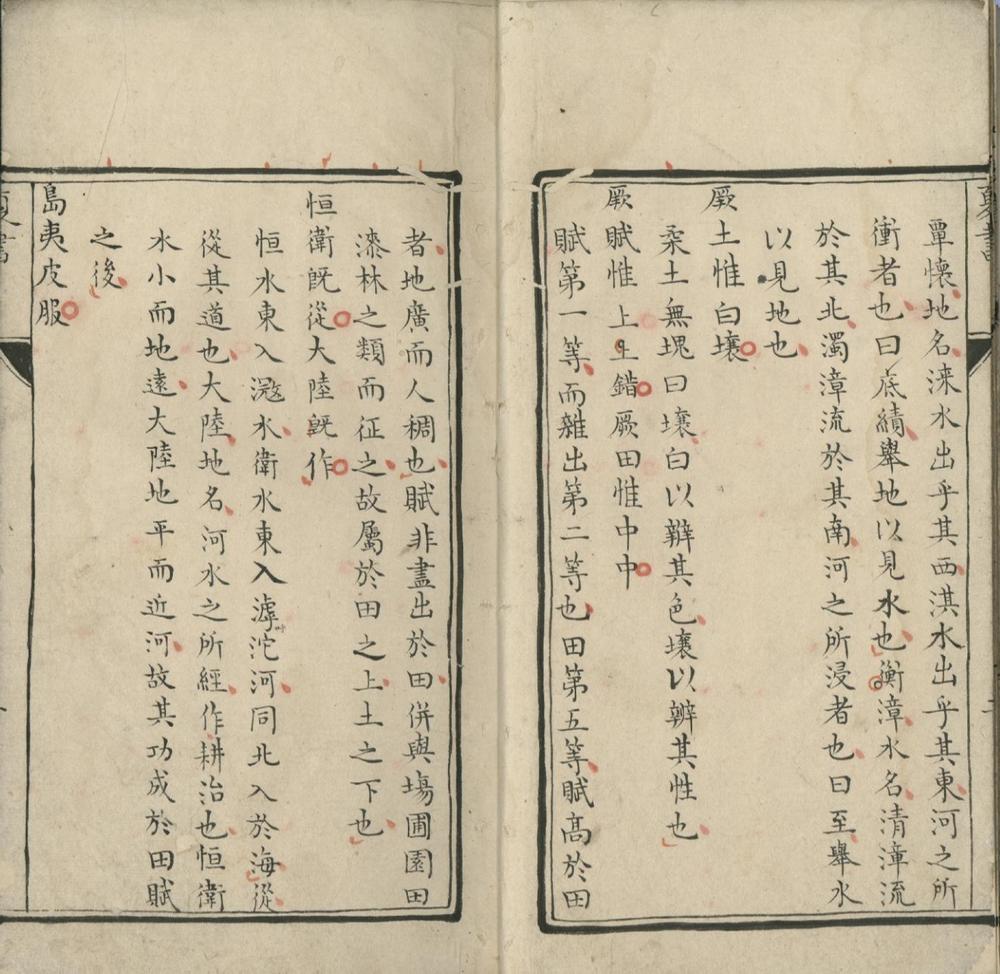 夏書
覃懷地名淶水出乎其西淇水出乎其東河之所
衝者也曰底績舉地以見水也衡漳水名清漳流
於其北濁漳流於其南河之所浸者也曰至舉水
以見地也
厥土惟白壤
柔土無塊曰壤白以辨其色壤以辨其性也
厥賦惟上上錯厥田惟中中
賦第一等而雜出第二等也田第五等賦高於田
者地廣而人稠也賦非盡出於田併與場圃園田
漆林之類而征之故屬於田之上土之下也
恒衛既從大陸既作
恒水東入滱水衛水東入滹沱河同北入於海從
從其道也大陸地名河水之所經作耕治也恒衛
水小而地遠大陸地平而近河故其功成於田賦
之後
島夷皮服
夏書